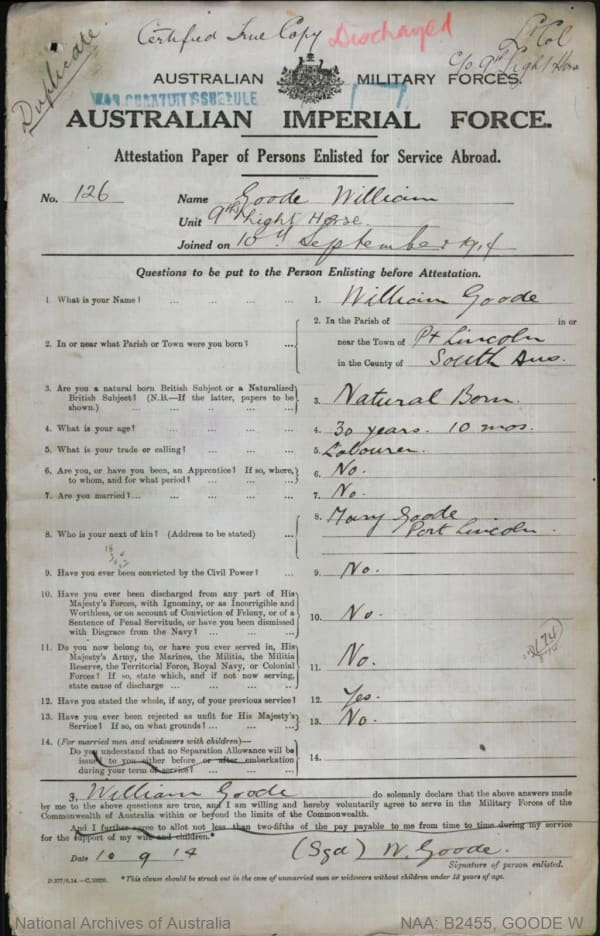 Certified True Copy Discharged Lt Col
c/o 9th Light Horse
Duplicate
AUSTRALIAN MILITARY FORCES.
WAR GRATUITY SCHEDULE
AUSTRALIAN IMPERIAL FORCE.
Attestation Paper of Persons Enlisted for Service Abroad.
No. 126 Name Goode William
Unit 9th Light Horse.
Joined on 10th September 1914
Questions to be put to the Person Enlisting before Attestation.
1. What is your Name? ... ... ... ... 1. William Goode
2. In or near what Parish or Town were you born? ... 2. In the Parish of in or
near the Town of Pt Lincoln
in the County of South Aus.
3. Are you a natural born British Subject or a Naturalized
British Subject? (N.B.—If the latter, papers to be
shown.) ... ... ... ... 3. Natural Born.
4. What is your age? ... ... ... ... 4. 30 years. 10 mos.
5. What is your trade or calling? ... ... ... 5. Labourer.
6. Are you, or have you been, an Apprentice? If so, where,
to whom, and for what period? ... ... ... 6. No.
7. Are you married?... ... ... ... ... 7. No.
8. Who is your next of kin? (Address to be stated) ... 8. Mary Goode
Port Lincoln.
9. Have you ever been convicted by the Civil Power? ... 9. No.
10. Have you ever been discharged from any part of His
Majesty's Forces, with Ignominy, or as Incorrigible and
Worthless, or on account of Conviction of Felony, or of a
Sentence of Penal Servitude, or have you been dismissed
with Disgrace from the Navy? ... ... ... 10. No.
11. Do you now belong to, or have you ever served in, His
Majesty's Army, the Marines, the Militia, the Militia
Reserve, the Territorial Force, Royal Navy, or Colonial
Forces? If so, state which, and if not now serving,
state cause of discharge ... ... ... ... 11. No.
12. Have you stated the whole, if any, of your previous service? 12. Yes.
13. Have you ever been rejected as unfit for His Majesty's
Service? If so, on what grounds? ... ... ... 13. No.
14. (For married men and widowers with children)—
Do you understand that no Separation Allowance will be
issued to you either before or after embarkation
during your term of service? ... ... ... 14.
I, William Goode do solemnly declare that the above answers made
by me to the above questions are true, and I am willing and hereby voluntarily agree to serve in the Military Forces of the
Commonwealth of Australia within or beyond the limits of the Commonwealth.
And I further agree to allot not less than two-fifths of the pay payable to me from time to time during my service
for the support of my wife and children.*
Date 10 9 14 (Sgd) W. Goode.
Signature of person enlisted.
*This clause should be struck out in the case of unmarried men or widowers without children under 18 years of age.
National Archives of Australia NAA: B2455, GOODE W